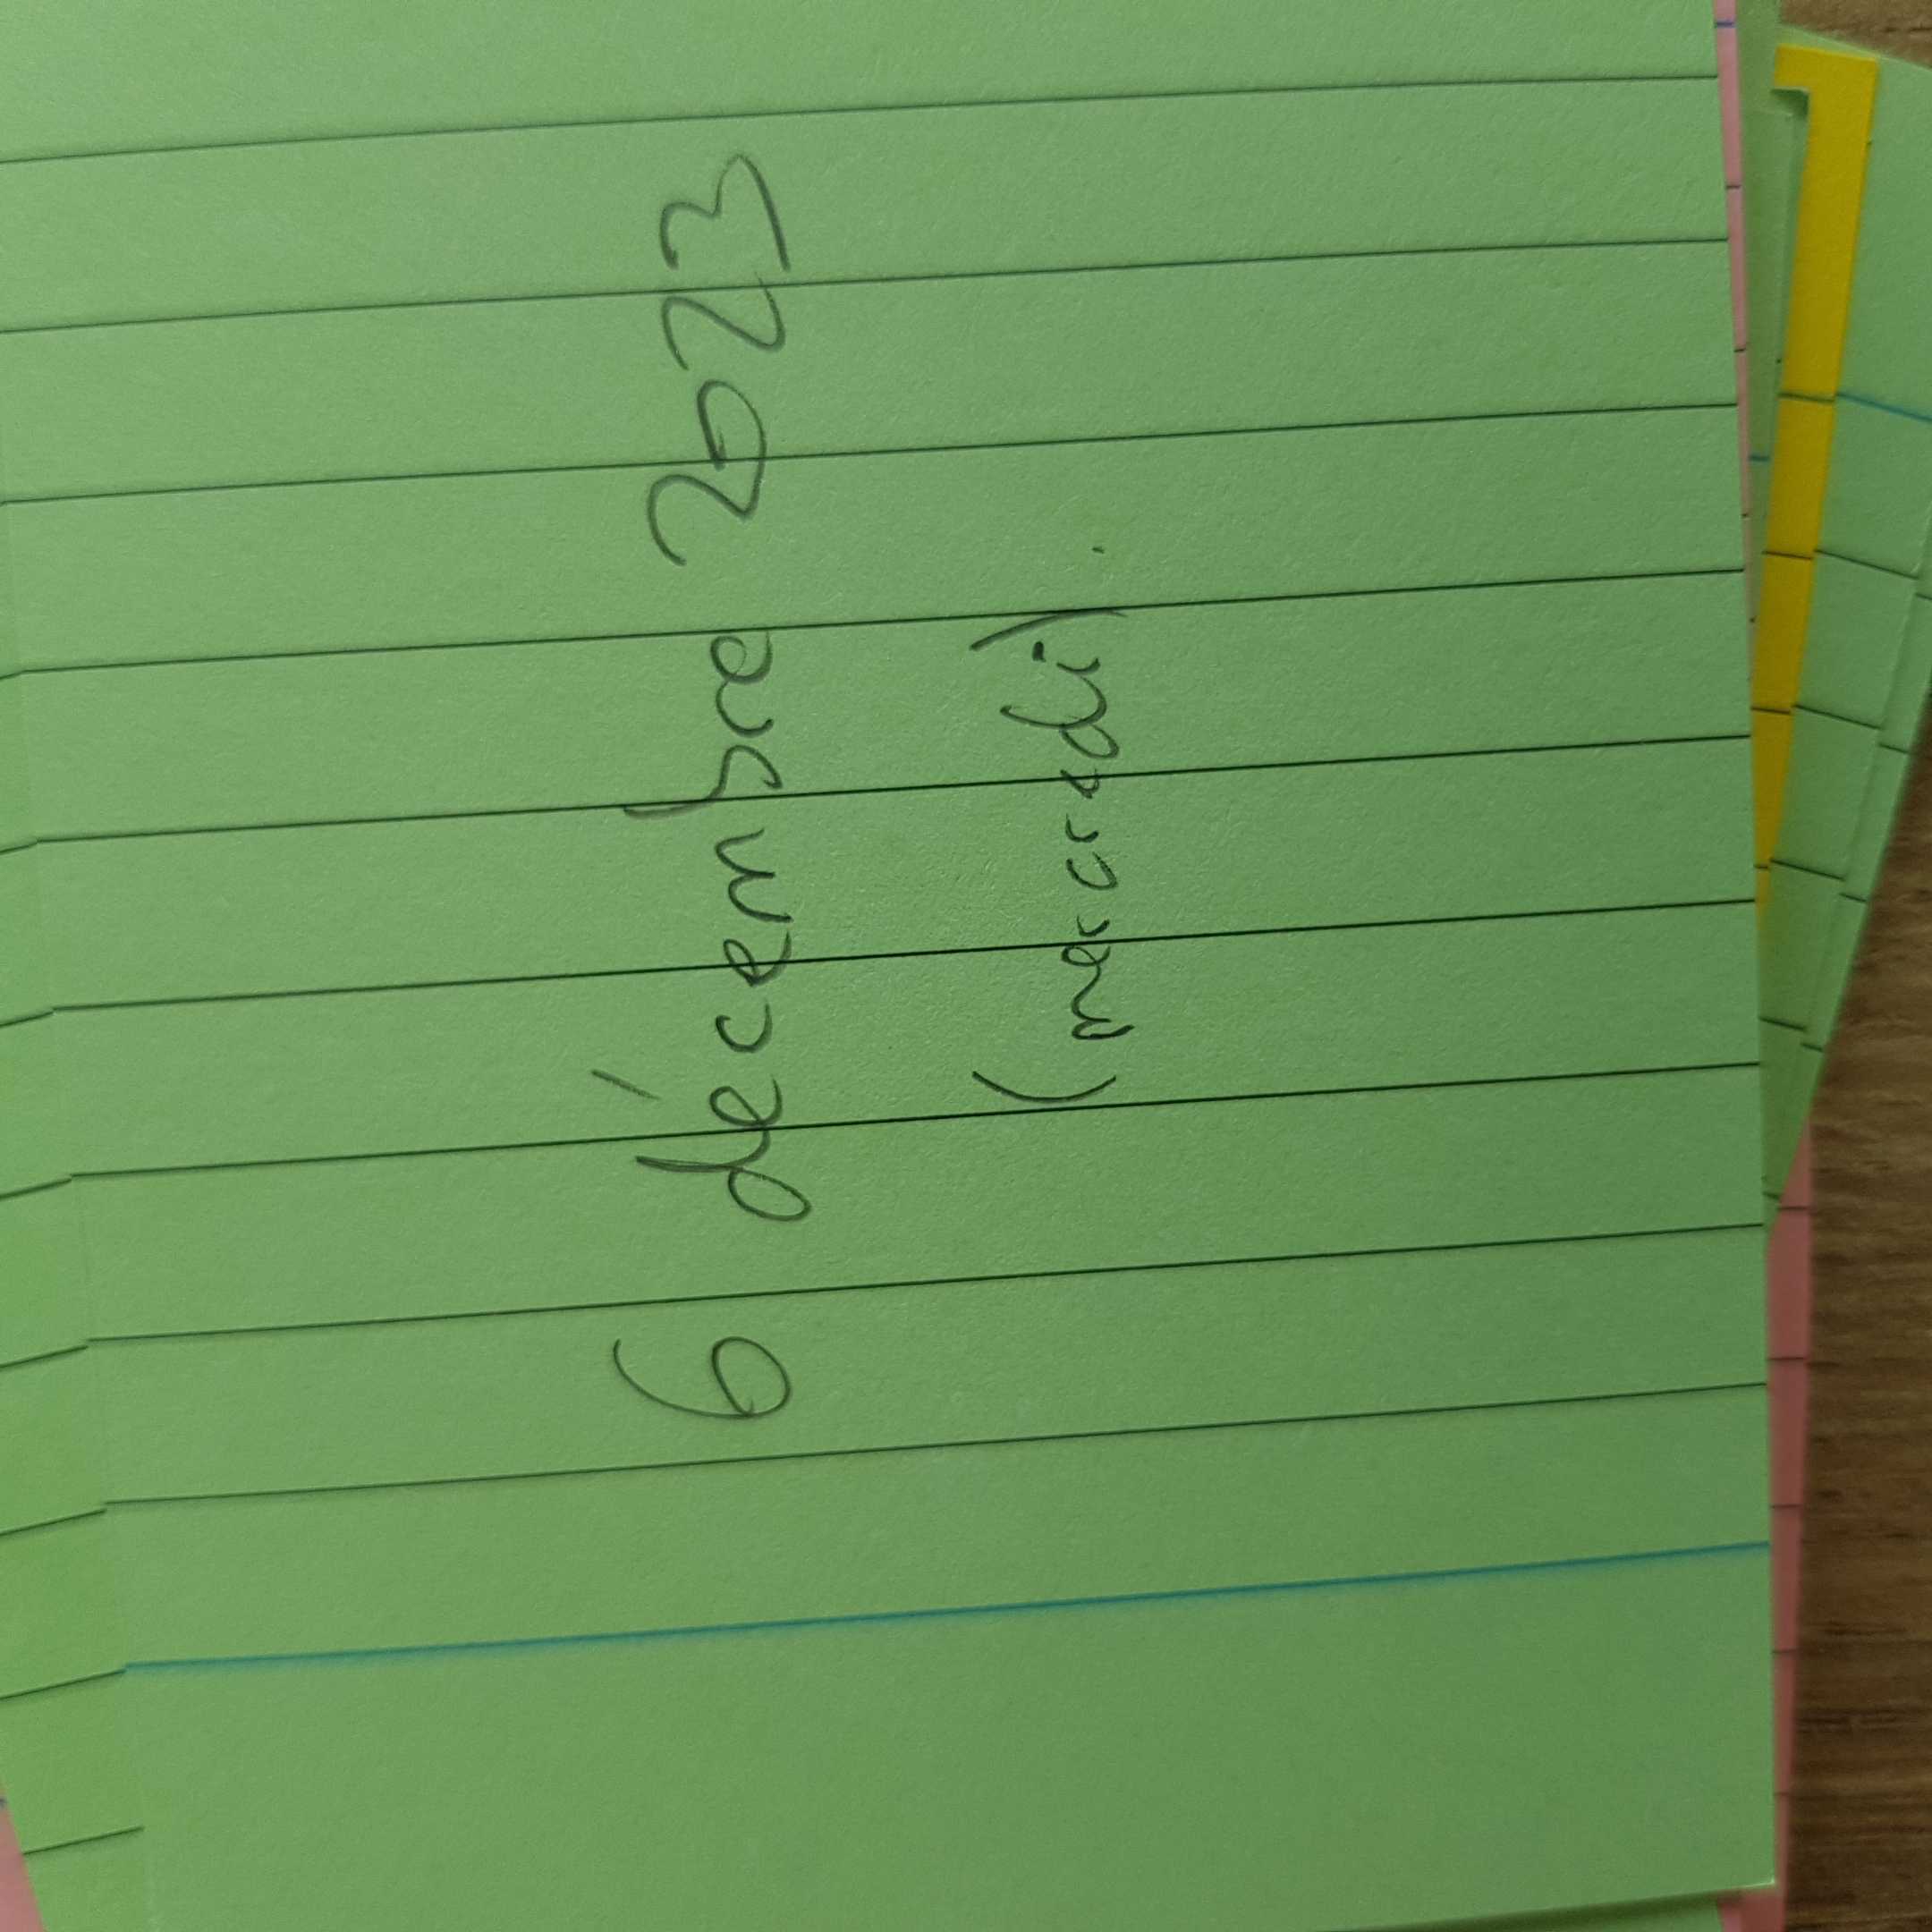 6 décembre 2023
(mercredi).